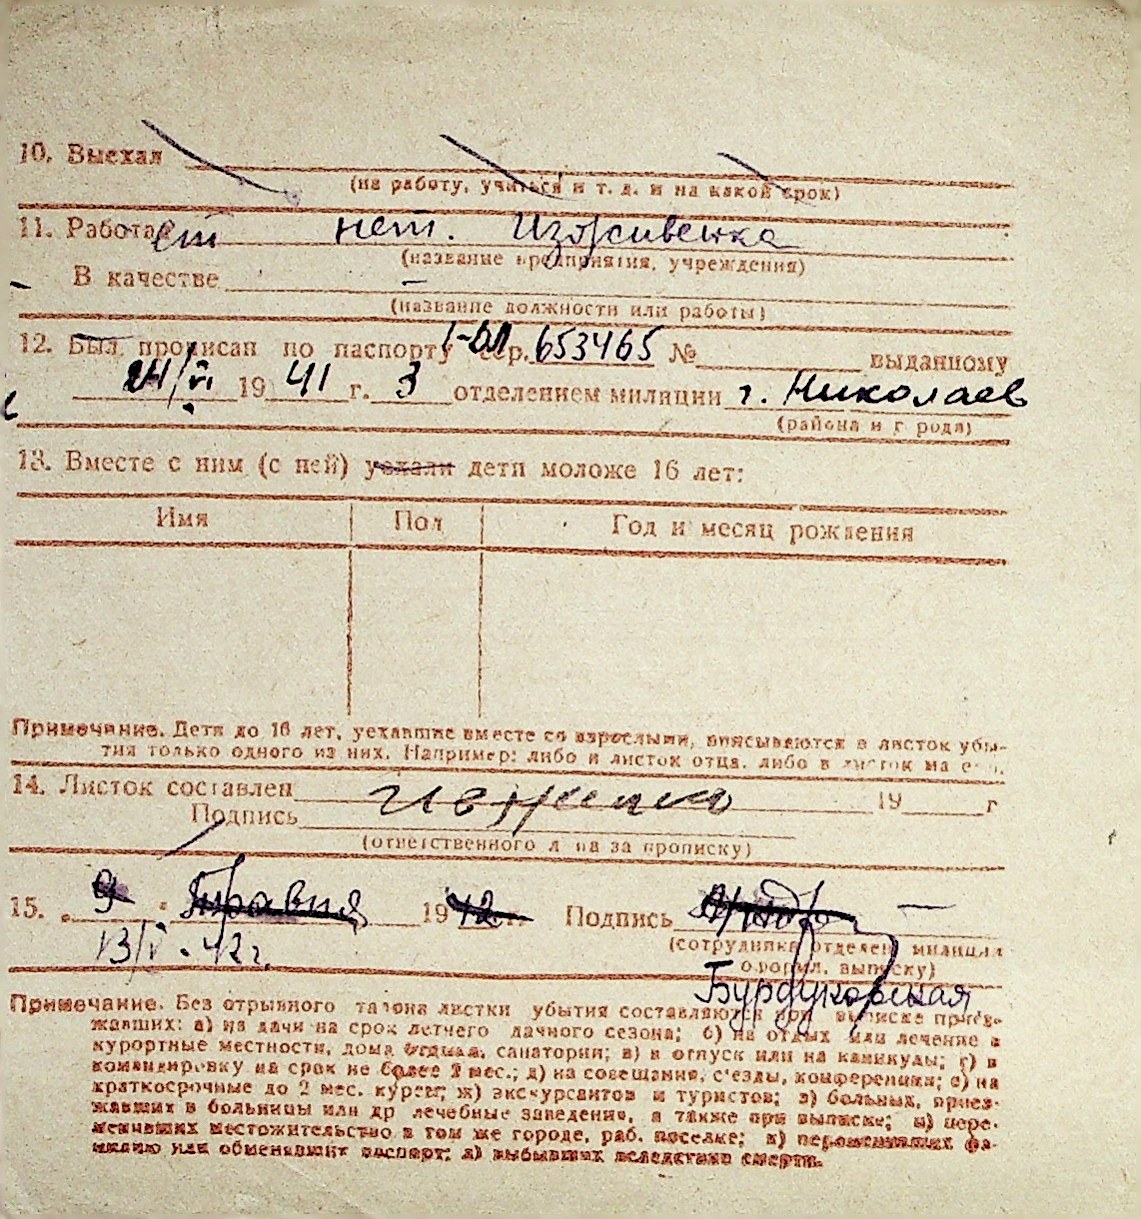 10. Выехал
(на работу, учиться и т. д. и на какой срок)
11. Работает нет. Иждивенка
(название предприятия, учреждения)
В качестве –
(название должности или работы)
12. Был прописан по паспорту сер. 653465 № выданному
24/VI 1941 г. 3 отделением милиции г. Николаев
(района и г рода)
13. Вместе с ним (с ней) уехали дети моложе 16 лет:
Имя Пол Год и месяц рождения
Примечание. Дети до 16 лет, уехавшие вместе со взрослыми, вписываются в листок убы-
тия только одного из них. Например: либо в листок отца, либо в листок ма
14. Листок составлен 19 г
Подпись
(ответственного л ца за прописку)
15. 9 Травня 1942 г. Подпись
(сотрудника отделен. милиции
13/V. 42 г. оформл. выписку)
Бурдукорская
Примечание. Без отрывного талона листки убытия составляются при выписке приез-
жавших: а) на дачи на срок летнего дачного сезона; б) на отдых или лечение в
курортные местности, дома отдыха, санатории; в) в отпуск или на каникулы; г) в
командировку на срок не более 2 мес.; д) на совещания, с'езды, конференции; е) на
краткосрочные до 2 мес. курсы; ж) экскурсантов и туристов; з) больных, приез-
жавших в больницы или др лечебные заведения, а также при выписке; и) пере-
менивших местожительство в том же городе, раб. поселке; к) переменивших фа-
милию или обменявших паспорт; л) выбывших вследствие смерти.